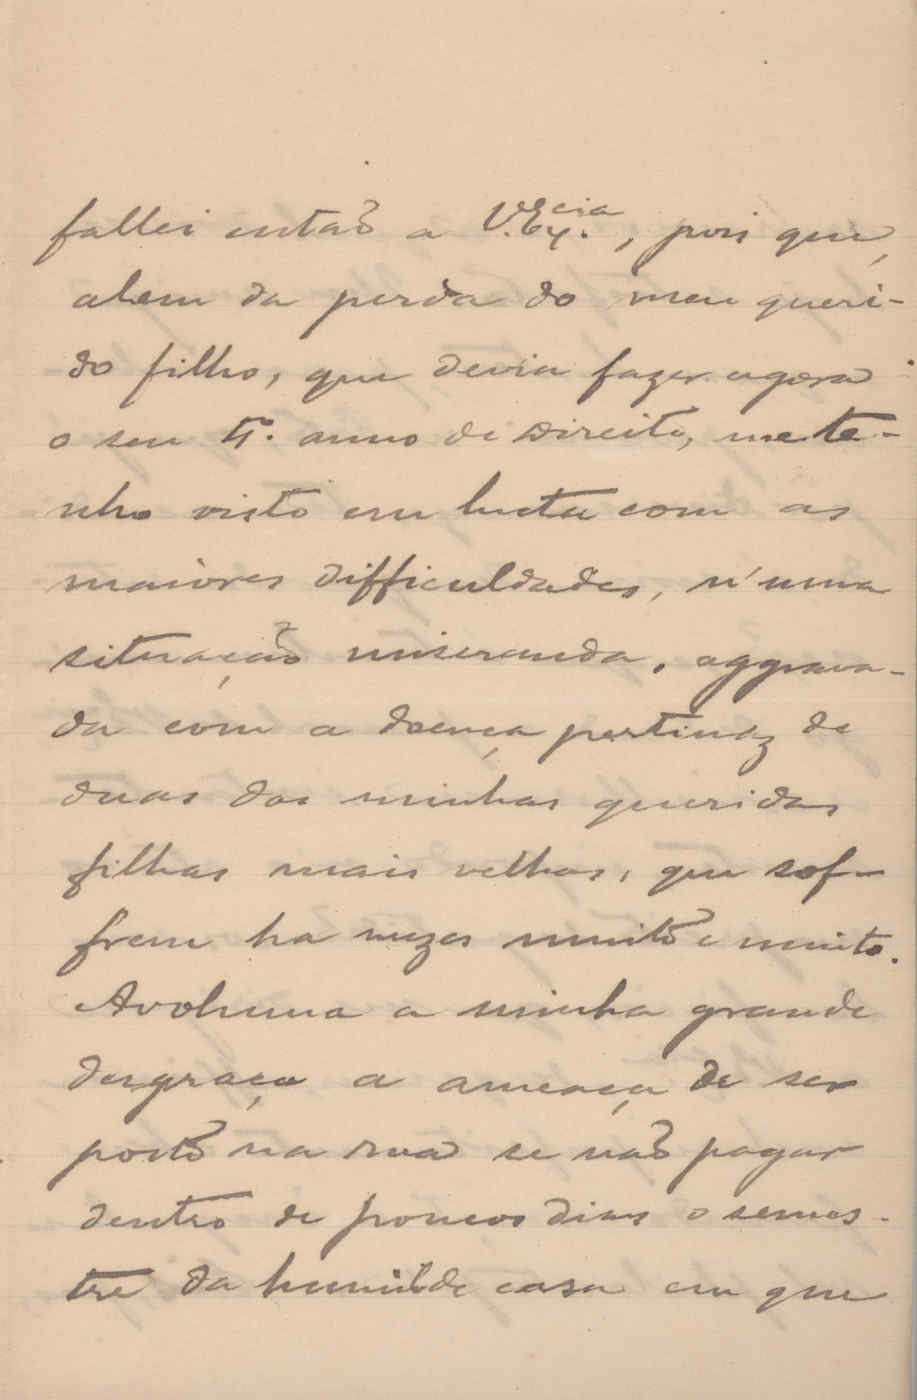 fallei então a V. Ex.cia, pois que,
alem da perda do meu queri-
do filho, que devia fazer agora
o seu 4º. anno de Direito, me te-
nho visto em lucta com as
maiores difficuldades, n'uma
situação miseranda, aggrava-
da com a doença pertinaz de
duas das minhas queridas
filhas mais velhas, que sof-
frem ha mezes muito e muito.
Avoluma a minha grande
desgraça a ameaça de ser
posto na rua se não pagar
dentro de poucos dias o semes-
tre da humilde casa em que